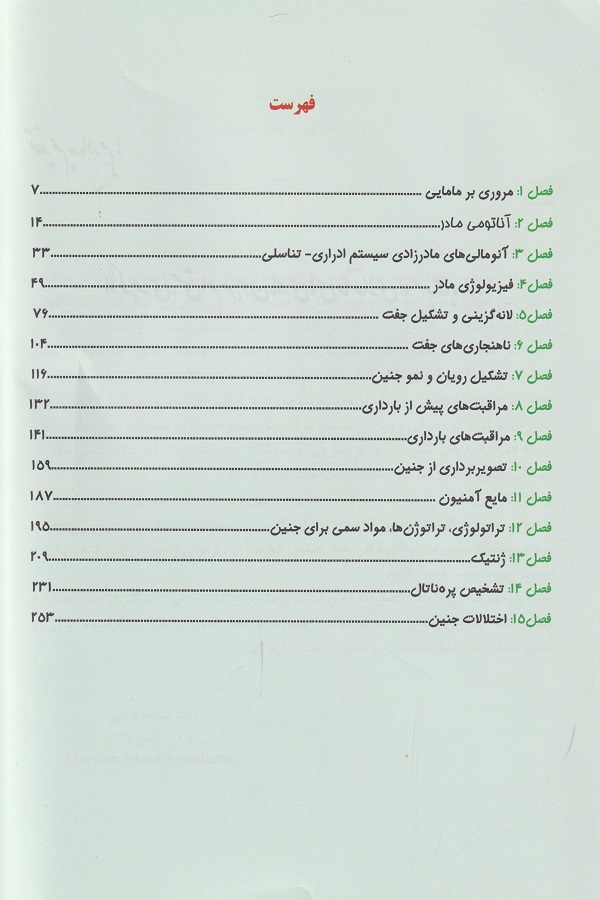 فهرست
فصل ۱: مروری بر مامایی ........................................ ۷
فصل ۲: آناتومی مادر........................................ ۱۴
فصل ۳: آنومالی‌های مادرزادی سیستم ادراری- تناسلی........................................ ۳۳
فصل۴: فیزیولوژی مادر ........................................ ۴۹
فصل۵: لانه‌گزینی و تشکیل جفت ........................................ ۷۶
فصل ۶: ناهنجاری‌های جفت ........................................ ۱۰۴
فصل ۷: تشکیل رویان و نمو جنین........................................ ۱۱۶
فصل ۸: مراقبت‌های پیش از بارداری........................................ ۱۳۲
فصل ۹: مراقبت‌های بارداری........................................ ۱۴۱
فصل ۱۰: تصویربرداری از جنین........................................ ۱۵۹
فصل ۱۱: مایع آمنیون ........................................ ۱۸۷
فصل ۱۲: تراتولوژی، تراتوژن‌ها، مواد سمی برای جنین........................................ ۱۹۵
فصل۱۳: ژنتیک........................................ ۲۰۹
فصل ۱۴: تشخیص پره‌ناتال........................................ ۲۳۱
فصل۱۵: اختلالات جنین........................................ ۲۵۳